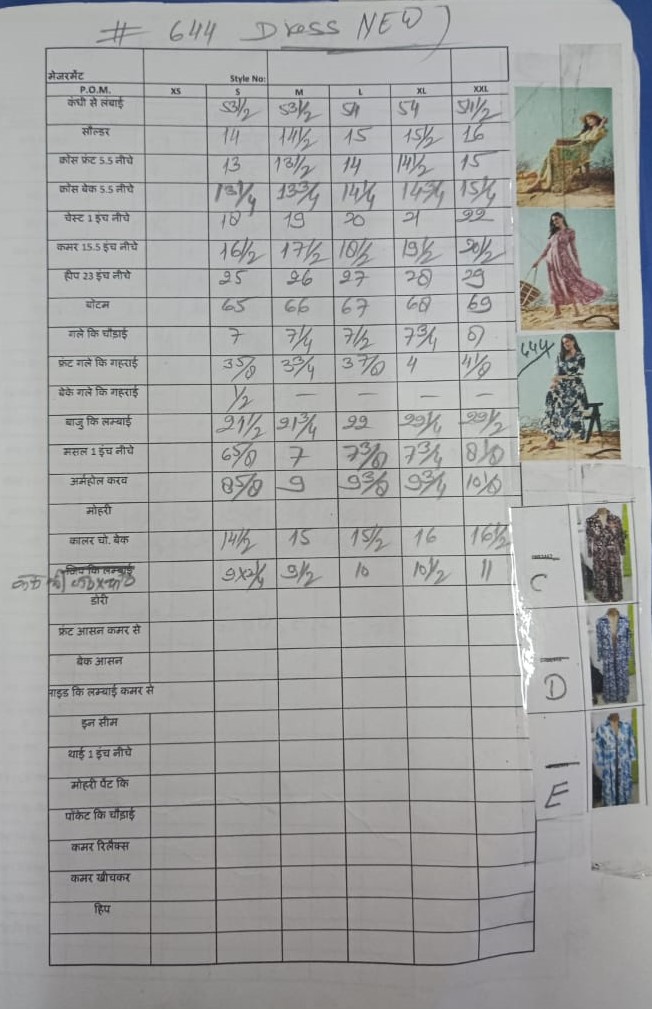 # 644 Dress NEW)
मेजरमेंट Style No:
P.O.M. XS S M L XL XXL
कंधी से लंबाई 53 1/2 53 1/2 54 54 54 1/2
सौल्डर 14 14 1/2 15 15 1/2 16
क्रोस फ्रंट 5.5 नीचे 13 13 1/2 14 14 1/2 15
क्रोस बेक 5.5 नीचे 13 1/4 13 3/4 14 1/4 14 3/4 15 1/4
चेस्ट 1 इंच नीचे 18 19 20 21 22
कमर 15.5 इंच नीचे 16 1/2 17 1/2 18 1/2 19 1/2 20 1/2
हीप 23 इंच नीचे 25 26 27 28 29
बोटम 65 66 67 68 69
गले कि चौड़ाई 7 7 1/4 7 1/2 7 3/4 8
फ्रंट गले कि गहराई 3 5/8 3 3/4 3 7/8 4 4 1/8
बेके गले कि गहराई 1/2 — — — —
बाजु कि लम्बाई 21 1/2 21 3/4 22 22 1/4 22 1/2
मसल 1 इंच नीचे 6 5/8 7 7 3/8 7 3/4 8 1/8
अर्महोल करव 8 5/8 9 9 3/8 9 3/4 10 1/8
मोहरी
कालर चो. बेक 14 1/2 15 15 1/2 16 16 1/2
कि लम्बाई 9x2 1/4 9 1/2 10 10 1/2 11
डोरी
फ्रंट आसन कमर से
बेक आसन
साइड कि लम्बाई कमर से
इन सीम
थाई 1 इंच नीचे
मोहरी पेंट कि
पॉकेट कि चौड़ाई
कमर रिलैक्स
कमर खीचकर
हिप
644
C
D
E